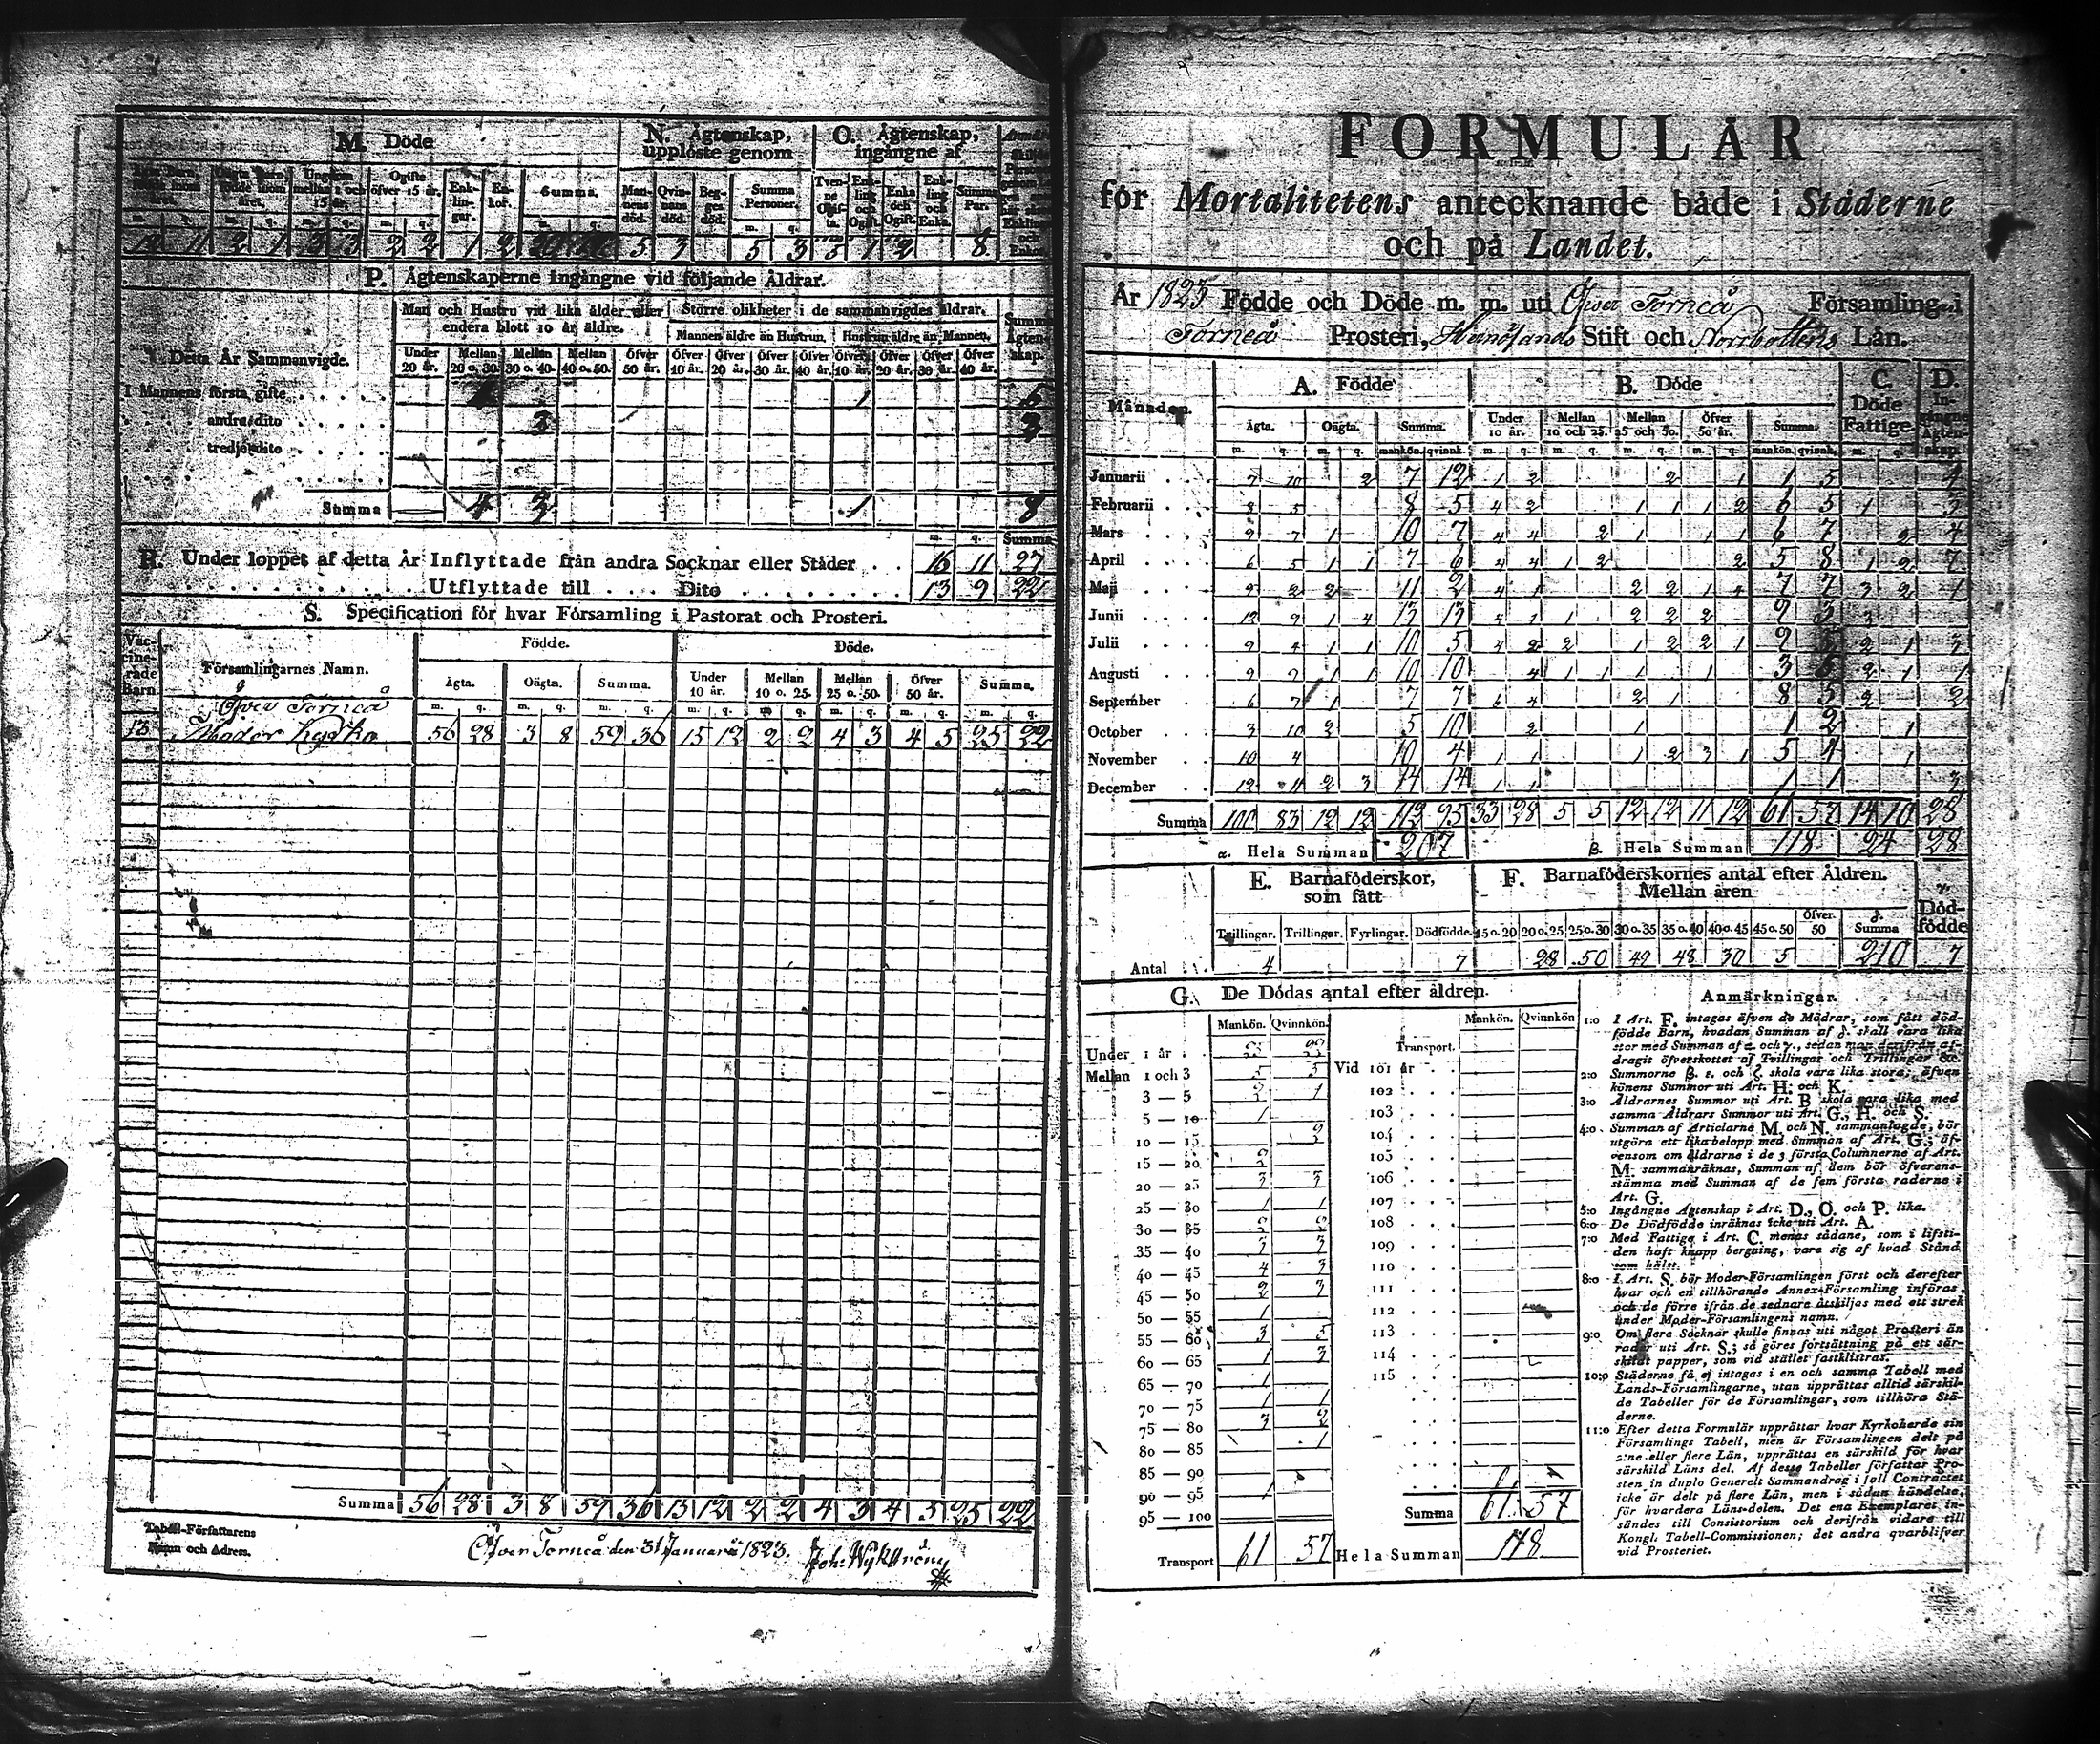 M. Döde
N. Ägtenskap, upplöste genom
O. Ägtenskap, ingångne af
Ogifte öfver 15 år.
Enk-lin-gar.
En-kor.
Summa.
Man-nens död.
Qvin-nans död.
Beg-ges död.
Summa Personer.
Tven-ne Ogif-ta.
Enk-ling och Ogift.
Enka och Ogift.
Enk-ling och Enka.
Summa Par.
11 2 1 3 3 2 2 1 2 5 3 5 3 5 1 2 8
P. Ägtenskaperne ingångne vid följande Åldrar.
Detta År Sammanvigde.
Man och Hustru vid lika ålder eller endera blott 10 år äldre.
Större olikheter i de sammanvigdes åldrar.
Mannen äldre än Hustrun.
Hustrun äldre än Mannen.
Under 20 år.
Mellan 20 o. 30.
Mellan 30 o. 40.
Mellan 40 o. 50.
Öfver 50 år.
Öfver 10 år.
Öfver 20 år.
Öfver 30 år.
Öfver 40 år.
Öfver 10 år.
Öfver 20 år.
Öfver 30 år.
Öfver 40 år.
I Mannens första gifte 4 1 5
andra dito 3 3
tredje dito
Summa 4 3 1 8
R. Under loppet af detta År Inflyttade från andra Socknar eller Städer 16 11 27
Utflyttade till Dito 13 9 22
S. Specification för hvar Församling i Pastorat och Prosteri.
Vac-cine-rade Barn.
Församlingarnes Namn.
Födde.
Döde.
Ägta.
Oägta.
Summa.
Under 10 år.
Mellan 10 o. 25.
Mellan 25 o. 50.
Öfver 50 år.
Summa.
Öfver Torneå
13 Moder Kyrka 56 28 3 8 59 36 15 12 2 2 4 3 4 5 25 22
Summa 56 28 3 8 59 36 15 12 2 2 4 3 4 5 25 22
Tabell-Författarens Namn och Adress.
Öfver Torneå den 31 Januarii 1823.
FORMULÄR
för Mortalitetens antecknande både i Städerne
och på Landet.
År 1823. Födde och Döde m. m. uti Öfver Torneå Församling
Torneå Prosteri, Hernösands Stift och Norrbottens Län.
Månader.
A. Födde
B. Döde
C. Döde Fattige.
D. In-gångne Ägten-skap.
Ägta.
Oägta.
Summa.
Under 10 år.
Mellan 10 och 25.
Mellan 25 och 50.
Öfver 50 år.
Summa.
Januarii 7 10 2 7 12 1 2 2 1 1 5 4
Februarii 8 5 8 5 4 2 1 1 1 2 6 5 1 3
Mars 9 7 1 10 7 4 4 2 1 1 1 6 7 2 4
April 6 5 1 1 7 6 4 4 1 2 2 5 8 1 2 7
Maji 9 2 2 11 2 4 1 2 2 1 4 7 7 3 2 1
Junii 12 9 1 4 13 13 4 1 1 2 2 2 9 3 3
Julii 9 4 1 1 10 5 4 2 2 1 2 2 1 9 5 2 1 3
Augusti 9 9 1 1 10 10 4 1 1 1 1 3 5 2 1 1
September 6 7 1 7 7 6 4 2 1 8 5 2 2
October 3 10 2 5 10 2 1 1 2 1
November 10 4 10 4 1 1 1 2 3 1 5 4 1
December 12 11 2 3 14 14 1 1 1 1 3
Summa 100 83 12 12 112 95 33 28 5 5 12 12 11 12 61 57 14 10 28
α. Hela Summan 207
β. Hela Summan 118 24 28
E. Barnaföderskor, som fått
F. Barnaföderskornes antal efter Åldren. Mellan åren
γ. Död-födde
Tvillingar. Trillingar. Fyrlingar. Dödfödde. 15 o. 20 20 o. 25 25 o. 30 30 o. 35 35 o. 40 40 o. 45 45 o. 50 Öfver 50 δ. Summa
Antal 4 7 28 50 49 48 30 5 210 7
G. De Dödas antal efter åldren.
Mankön. Qvinnkön. Mankön. Qvinnkön
Under 1 år
Transport.
Mellan 1 och 3 5 5 Vid 101 år
3 — 5 2 1 102
5 — 10 1 103
10 — 15 2 104
15 — 20 2 105
20 — 25 3 3 106
25 — 30 1 1 107
30 — 35 2 2 108
35 — 40 3 3 109
40 — 45 4 3 110
45 — 50 2 3 111
50 — 55 1 112
55 — 60 3 5 113
60 — 65 1 3 114
65 — 70 1 115
70 — 75 1 1
75 — 80 3 2
80 — 85 1
85 — 90
90 — 95 1
95 — 100
Summa 61 57
Transport 61 57 Hela Summan 118
Anmärkningar.
1:o I Art. F. intagas äfven de Mödrar, som fått död-
födde Barn, hvadan Summan af δ. skall vara lika
stor med Summan af α. och γ., sedan man derifrån af-
dragit öfverskottet af Tvillingar och Trillingar &c.
2:o Summorne β. ε. och ζ. skola vara lika stora; äfven
könens Summor uti Art. H. och K.
3:o Åldrarnes Summor uti Art. B skola vara lika med
samma Åldrars Summor uti Art. G., H. och S.
4:o Summan af Articlarne M. och N. sammanlagde, bör
utgöra ett lika belopp med Summan af Art. G.; äf-
vensom om åldrarne i de 3 första Columnerne af Art.
M. sammanräknas, Summan af dem bör öfverens-
stämma med Summan af de fem första raderne i
Art. G.
5:o Ingångne Ägtenskap i Art. D., O. och P. lika.
6:o De Dödfödde inräknas icke uti Art. A.
7:o Med Fattige i Art. C. menas sådane, som i lifsti-
den haft knapp bergning, vare sig af hvad Stånd
som hälst.
8:o I Art. S. bör Moder-Församlingen först och derefter
hvar och en tillhörande Annex-Församling införas,
och de förre ifrån de sednare åtskiljas med ett strek
under Moder-Församlingens namn.
9:o Om flere Socknar skulle finnas uti något Prosteri än
rader uti Art. S.; så göres fortsättning på ett sär-
skildt papper, som vid stället fastklistrar.
10:o Städerne få ej intagas i en och samma Tabell med
Lands-Församlingarne, utan upprättas alltid särskil-
de Tabeller för de Församlingar, som tillhöra Stä-
derne.
11:o Efter detta Formulär upprättar hvar Kyrkoherde sin
Församlings Tabell, men är Församlingen delt på
2:ne eller flere Län, upprättas en särskild för hvar
särskild Läns del. Af desse Tabeller författar Pro-
sten in duplo Generelt Sammandrag i fall Contractet
icke är delt på flere Län, men i sådan händelse,
för hvardera Läns-delen. Det ena Exemplaret in-
sändes till Consistorium och derifrån vidare till
Kongl. Tabell-Commissionen; det andra qvarblifver
vid Prosteriet.